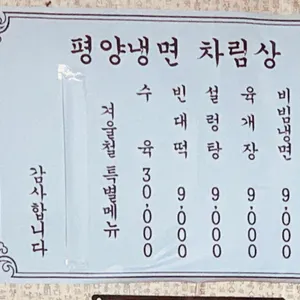 평양냉면 차림상
비빔냉면 9.000
육개장 9.000
설렁탕 9.000
빈대떡 9.000
수육 30.000
겨울철 특별메뉴
감사합니다